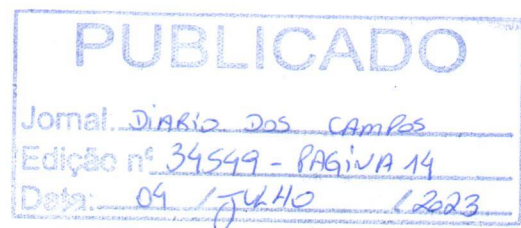 PUBLICADO
Jornal: DIARIO DOS CAMPOS
Edição nº 34549 - PAGINA 14
Data: 04 / JULHO / 2023